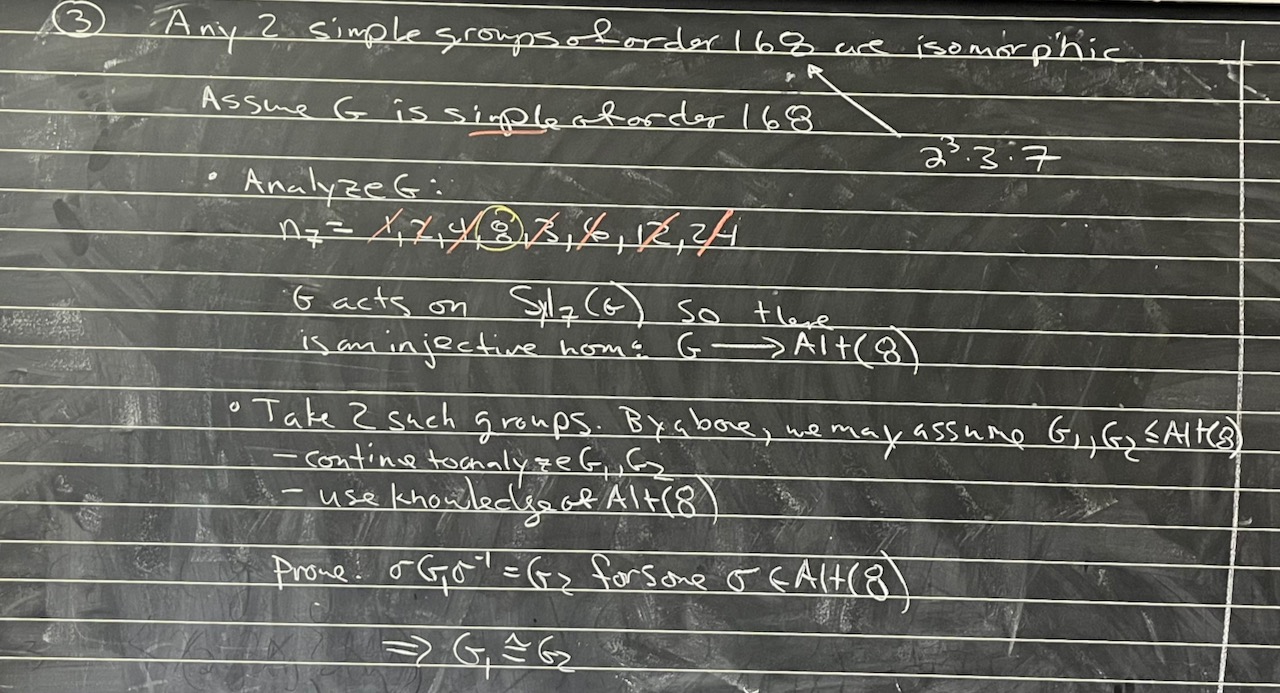 ③ Any 2 simple groups of order 168 are isomorphic
Assume G is simple of order 168
2³·3·7
• Analyze G:
n₇ = 1, 2, 4, 8, 3, 6, 12, 24
G acts on Syl₇(G) so there
is an injective hom: G ⟶ Alt(8)
• Take 2 such groups. By above, we may assume G₁, G₂ ≤ Alt(8)
- continue to analyze G₁, G₂
- use knowledge of Alt(8)
Prove: σG₁σ⁻¹ = G₂ for some σ ∈ Alt(8)
⇒ G₁ ≅ G₂